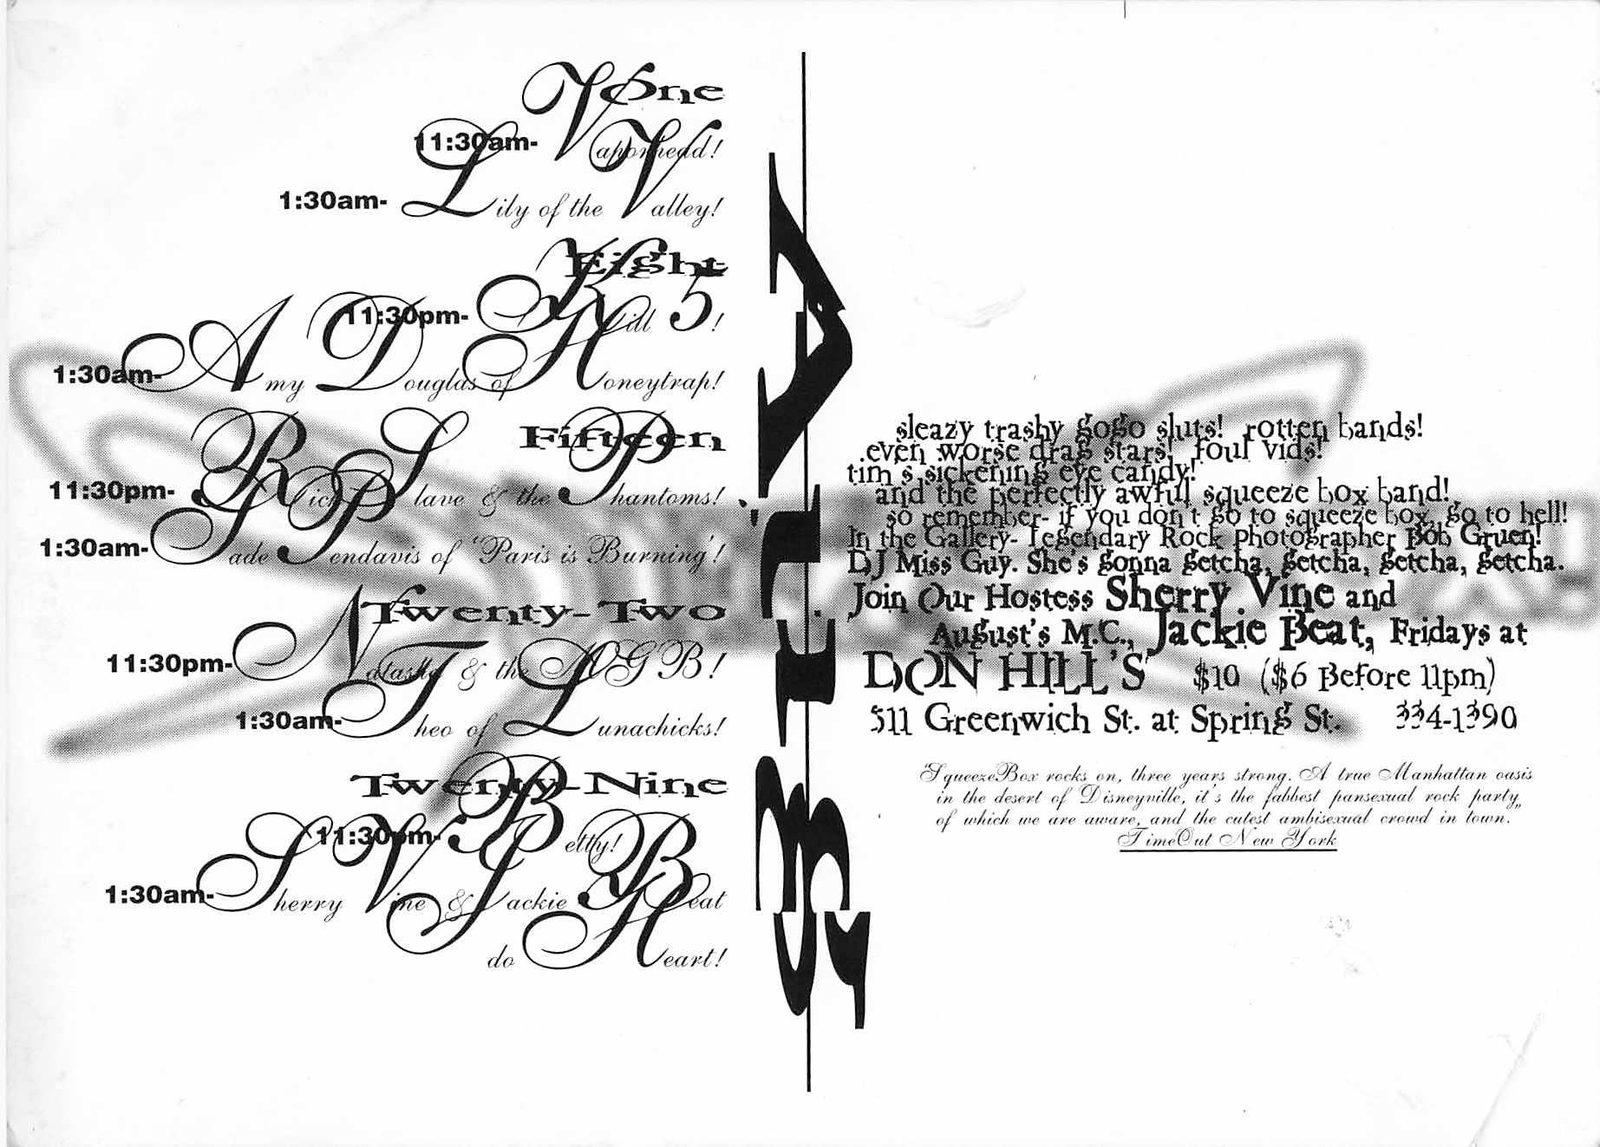 One
11:30am- Vaporhead!
1:30am- Lily of the Valley!
Eight
11:30pm- Kill 5!
1:30am- Amy Douglas of Honeytrap!
Fifteen
11:30pm- Rick Slave & the Phantoms!
1:30am- Jade Pendavis of 'Paris is Burning'!
Twenty-Two
11:30pm- Natasha & the MGB!
1:30am- Theo of Lunachicks!
Twenty-Nine
11:30pm- Betty!
1:30am- Sherry Vine & Jackie Beat
do Heart!
August
sleazy trashy gogo sluts! rotten bands!
even worse drag stars! foul vids!
tim's sickening eye candy!
and the perfectly awful squeeze box band!
so remember- if you don't go to squeeze box, go to hell!
In the Gallery- Legendary Rock Photographer Bob Gruen!
DJ Miss Guy. She's gonna getcha, getcha, getcha, getcha.
Join Our Hostess Sherry Vine and
August's M.C., Jackie Beat, Fridays at
DON HILL'S $10 ($6 Before 11pm)
511 Greenwich St. at Spring St. 334-1390
"SqueezeBox rocks on, three years strong. A true Manhattan oasis
in the desert of Disneyville, it's the fabbest pansexual rock party
of which we are aware, and the cutest ambisexual crowd in town."
TimeOut New York